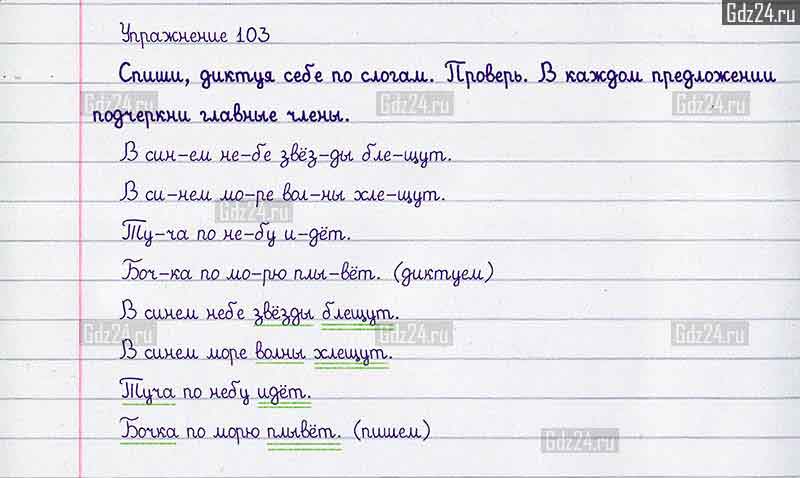 Gdz24.ru
Упражнение 103
Спиши, диктуя себе по слогам. Проверь. В каждом предложении
Gdz24.ru Gdz24.ru Gdz24.ru
подчеркни главные члены.
В син-ем не-бе звёз-ды бле-щут.
В си-нем мо-ре вол-ны хле-щут.
Gdz24.ru
Ту-ча по не-бу и-дёт.
Боч-ка по мо-рю плы-вёт. (диктуем)
В синем небе звёзды блещут.
Gdz24.ru Gdz24.ru Gdz24.ru
В синем море волны хлещут.
Туча по небу идёт.
Бочка по морю плывёт. (пишем)
Gdz24.ru